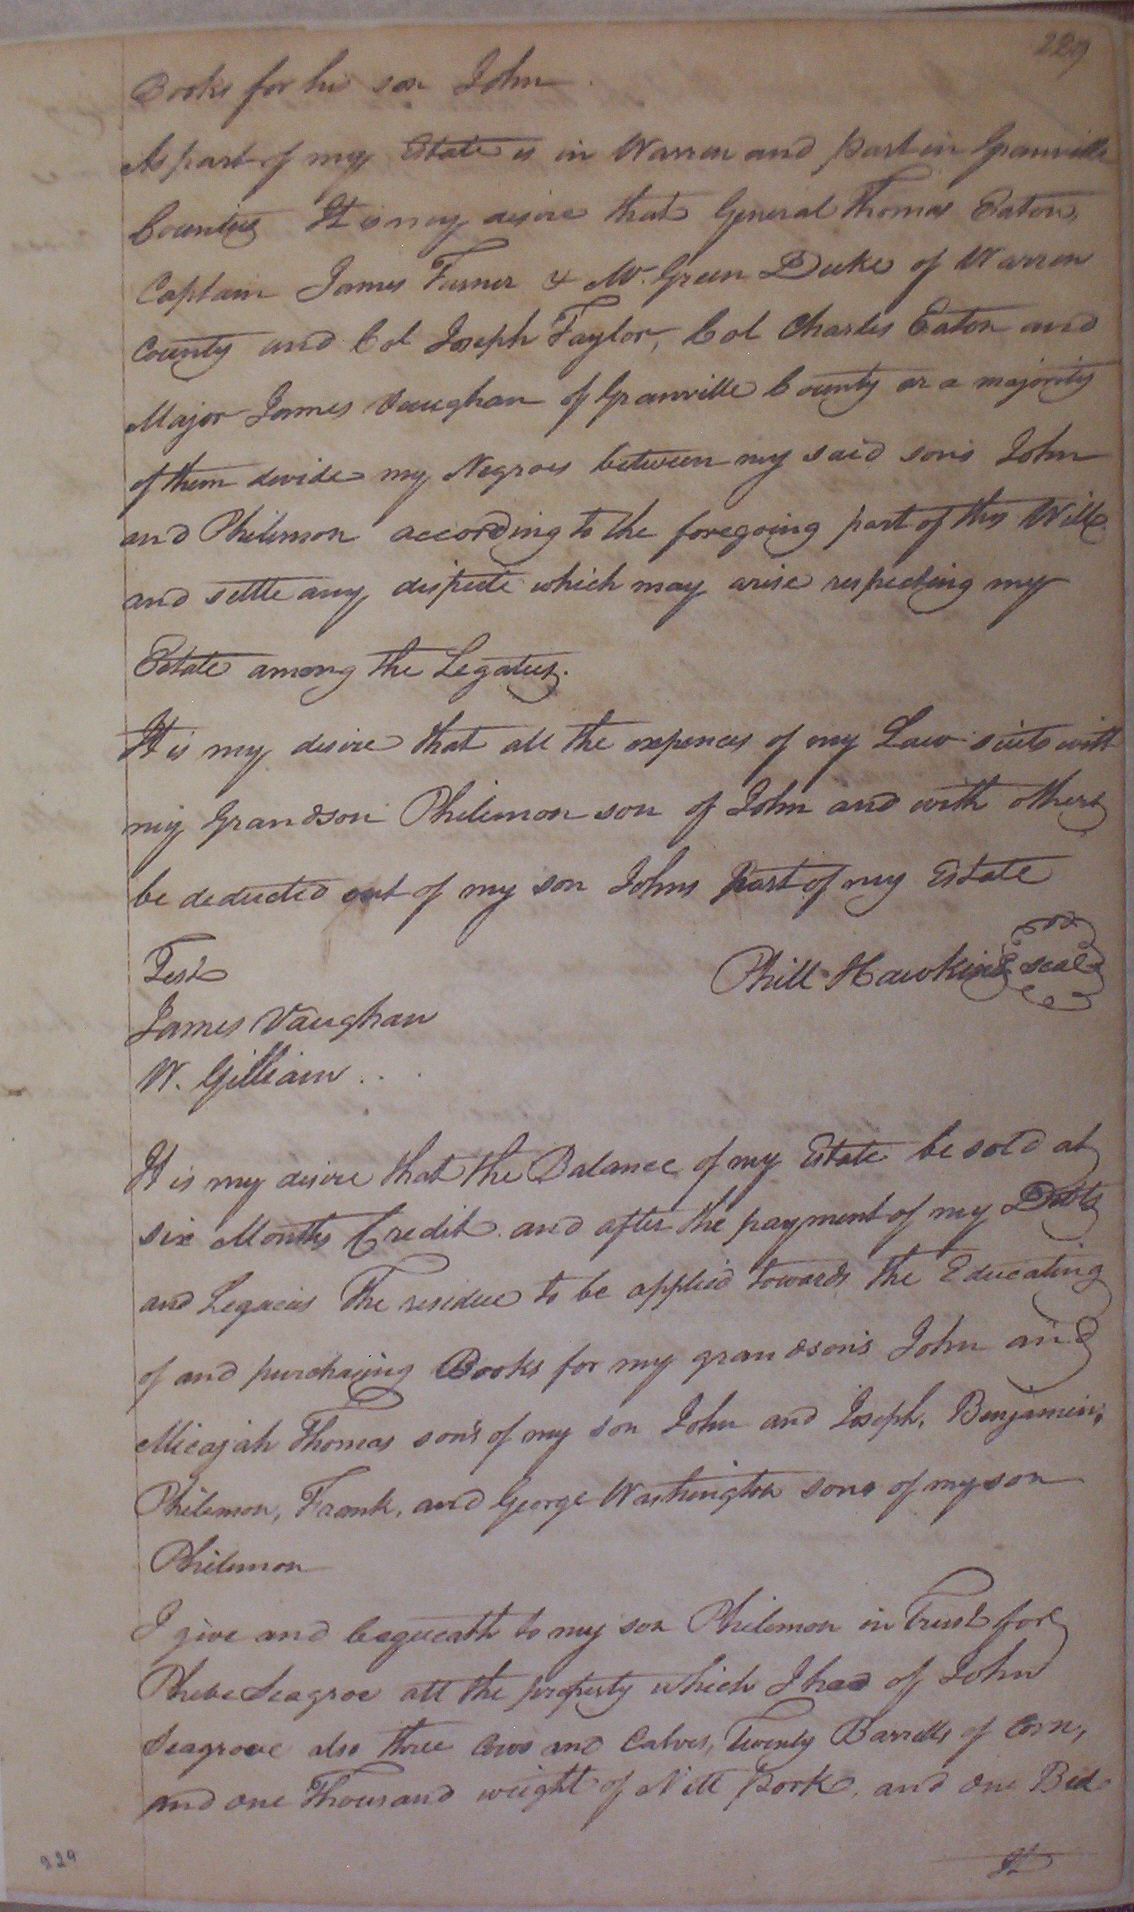 229
Books for his son John
As part of my Estate is in Warren and part in Granville
Counties It is my desire that General Thomas Eaton,
Captain James Turner & Mr. Green Duke of Warren
County and Col Joseph Taylor, Col Charles Eaton and
Major James Vaughan of Granville County or a majority
of them devide my Negroes between my said sons John
and Philemon according to the foregoing part of this Will
and settle any dispute which may arise respecting my
Estate among the Legatees.
It is my desire that all the expences of my Law suits with
my Grandson Philemon son of John and with others
be deducted out of my son Johns part of my Estate
Test
Phill Hawkins seal
James Vaughan
W. Gilliam
It is my desire that the Balance of my Estate be sold at
six Months Credit and after the payment of my Debts
and Legacies The residue to be applied towards the Educating
of and purchasing Books for my grandsons John and
Micajah Thomas sons of my son John and Joseph, Benjamin,
Philemon, Frank, and George Washington sons of my son
Philemon
I give and bequeath to my son Philemon in Trust for
Phebe Seagroe all the property which I had of John
Seagrove also three Cows and Calves, Twenty Barrells of Corn,
and one Thousand weight of Nett Pork, and one Bed
229